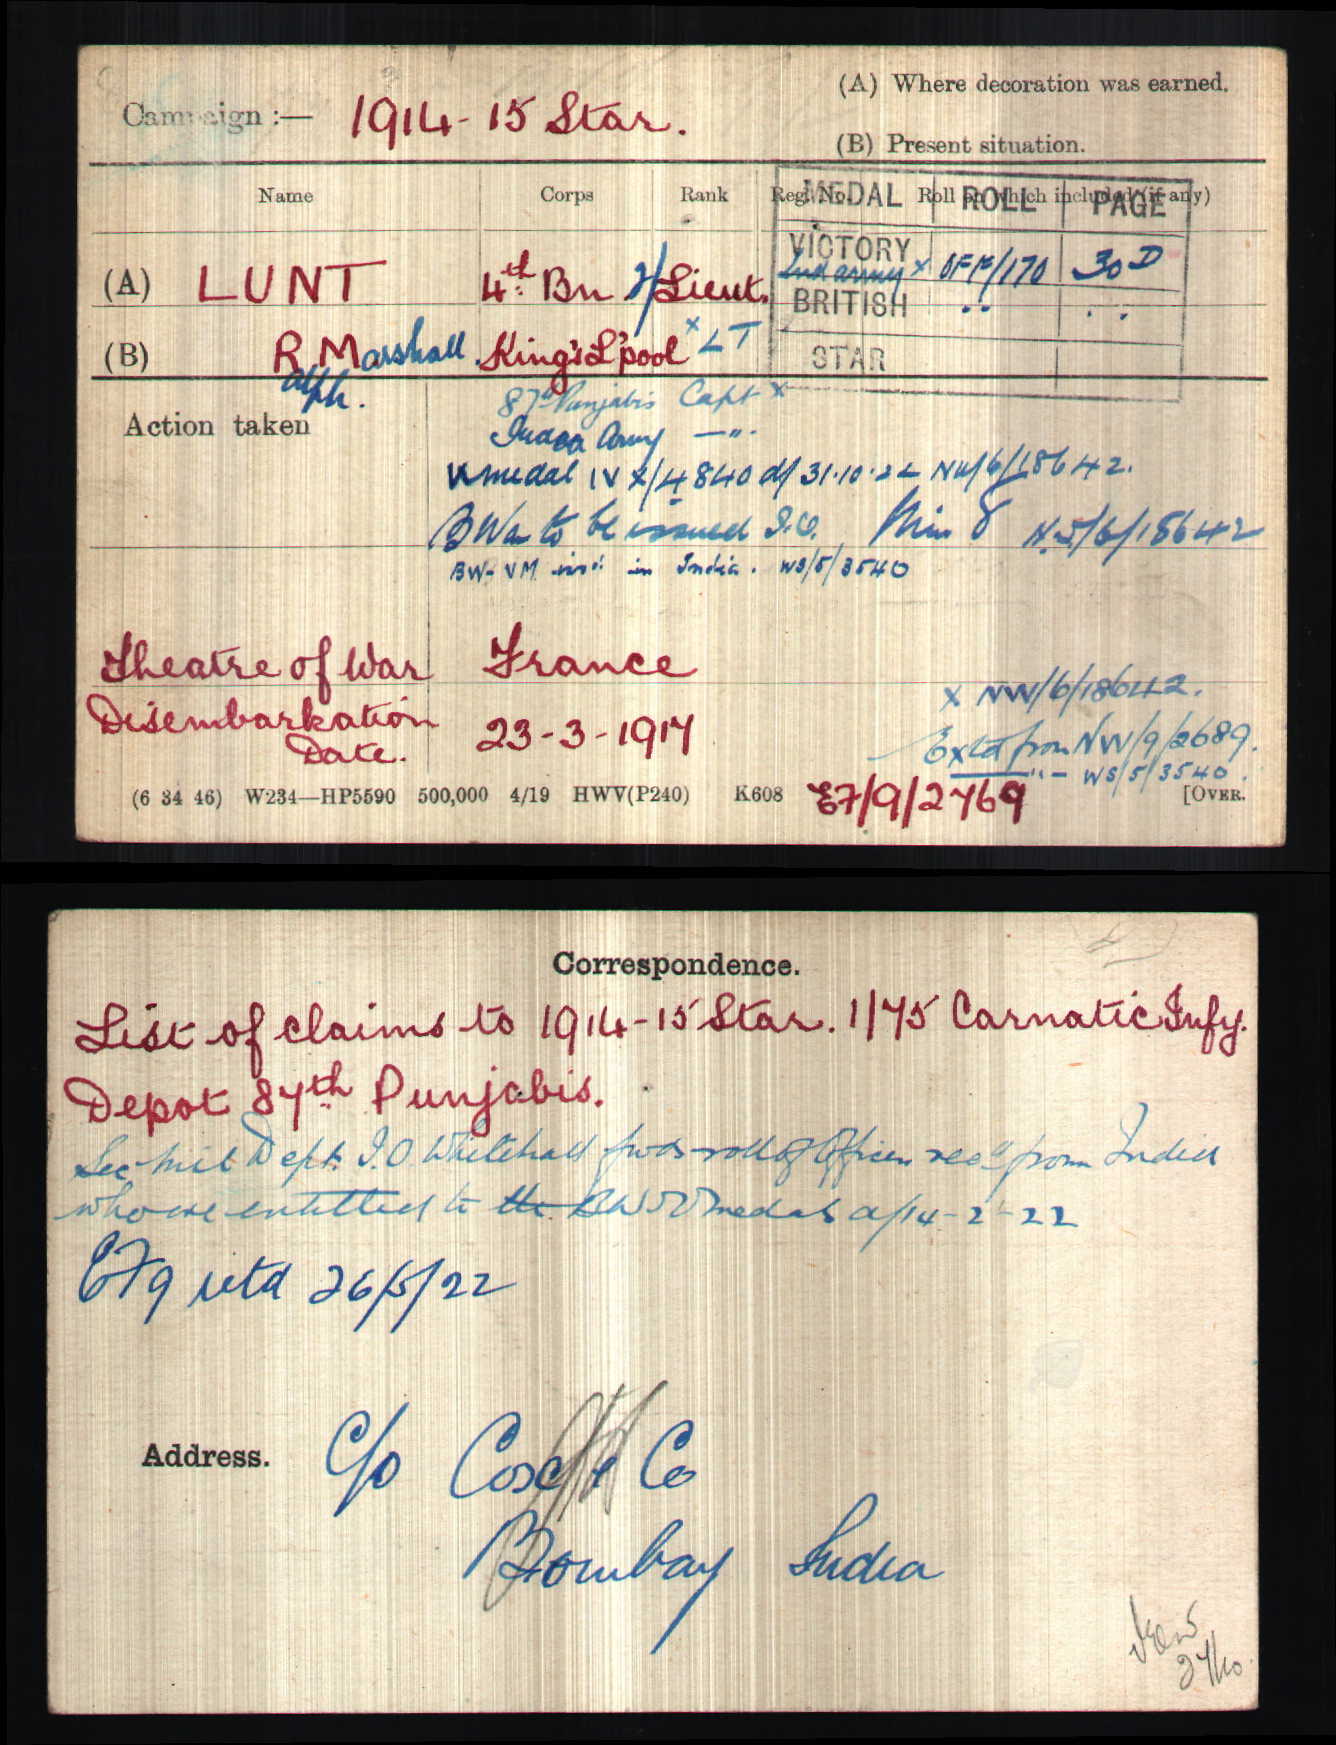 Campaign :— 1914-15 Star.
(A) Where decoration was earned.
(B) Present situation.
Name Corps Rank Regl. No. Roll on which included (if any)
MEDAL ROLL PAGE
VICTORY OFF/170 30 D
Ind army x
BRITISH " "
STAR
(A) LUNT 4th Bn 2/Lieut.
(B) R. Marshall. King's L'pool x LT
alph.
87th Punjabis Capt x
Action taken
Indian Army — " .
V medal IV X/4840 d/ 31.10.22 NW/6/18642.
BWar to be issued I.O. Min 8 N.W/6/18642
BW- VM iss: in India. WS/5/3540
Theatre of War France
x NW/6/18642.
Disembarkation 23-3-1917
Date.
Extd from NW/9/2689.
" — WS/5/3540.
(6 34 46) W234—HP5590 500,000 4/19 HWV(P240) K608 E7/9/2769 [OVER.
Correspondence.
List of claims to 1914-15 Star. 1/75 Carnatic Infy.
Depot 87th Punjabis.
Sec Milt Dept. I.O. Whitehall fwds roll of Officers recd from India
who are entitled to the BW & V Medals d/14-2-22
EF9 retd 26/5/22
Address. C/o Cox & Co
Bombay India
27/10.